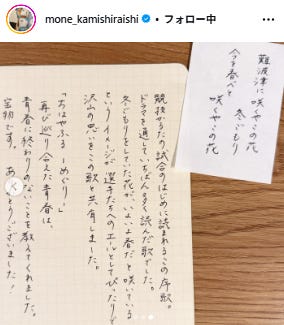 mone_kamishiraishi ・フォロー中
難波津に咲くやこの花
冬ごもり
今を春べと
咲くやこの花
競技かるたの試合のはじめに読まれるこの序歌。
ドラマを通していちばん多く読んだ歌でした。
冬ごもりをしていた花が、いよいよ春だと咲いている
というイメージが選手たちへのエールとしてぴったりで
沢山の思いをこの歌と共有しました。
「ちはやふる ーめぐりー」
再び巡り合えた青春は、
青春に終わりのないことを教えてくれました。
宝物です。 ありがとうございました!